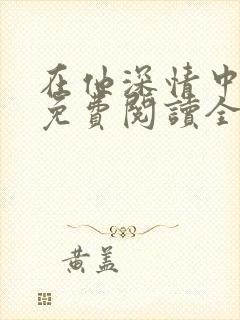 在他深情中
免費閱讀全
黃蓋